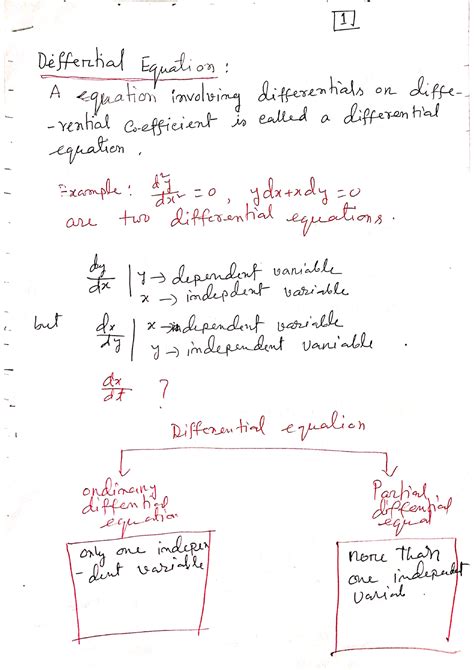 1
Differntial Equation :
A equation involving differentials or diffe-
-rential co-efficient is called a differential
equation.
Example : d²y/dx² = 0 , ydx+xdy = 0
are two differential equations.
dy/dx | y → dependent variable
x → indepdent variable
but dx/dy | x → dependent variable
y → independent variable .
dx/dt ?
Differential equation
ordinary
diffential
equation
Partial
diffential
equal
only one indepen
-dent variable
more than
one independent
variabl .